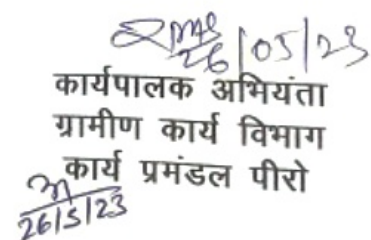 26/05/23
कार्यपालक अभियंता
ग्रामीण कार्य विभाग
कार्य प्रमंडल पीरो
26/5/23